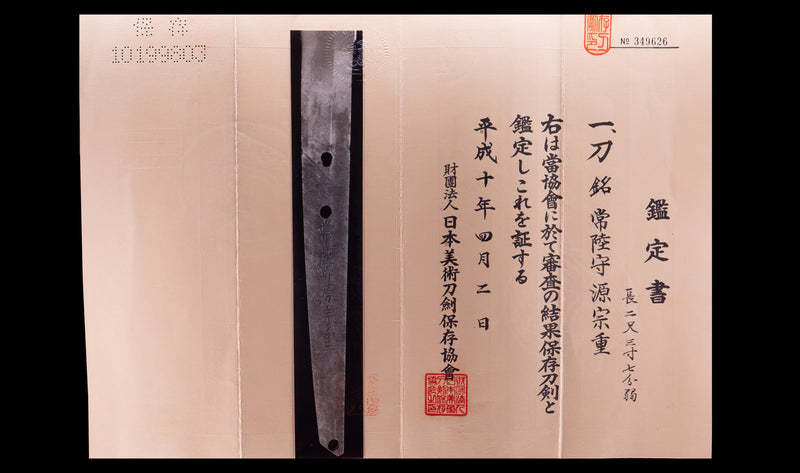 保存
10199803
№ 349626
鑑定書
一、刀 銘 常陸守源宗重
長二尺三寸七分弱
右は當協會に於て審査の結果保存刀剣と
鑑定しこれを証する
平成十年四月二日
財團法人 日本美術刀劍保存協會